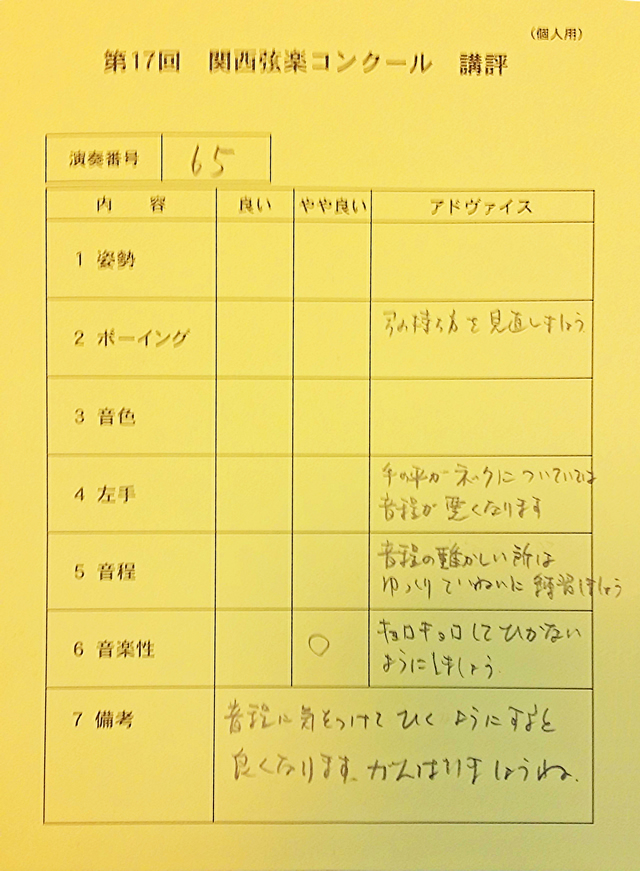 （個人用）
第17回 関西弦楽コンクール 講評
演奏番号 65
内 容 良い やや良い アドヴァイス
1 姿勢
2 ボーイング 弓の持ち方を見直しましょう
3 音色
4 左手 手の平がネックについていては
音程が悪くなります
5 音程 音程の難かしい所は
ゆっくりていねいに練習しましょう
6 音楽性 ○ キョロキョロしてひかない
ようにしましょう.
7 備考 音程に気をつけてひくようにすると
良くなります. がんばりましょうね.